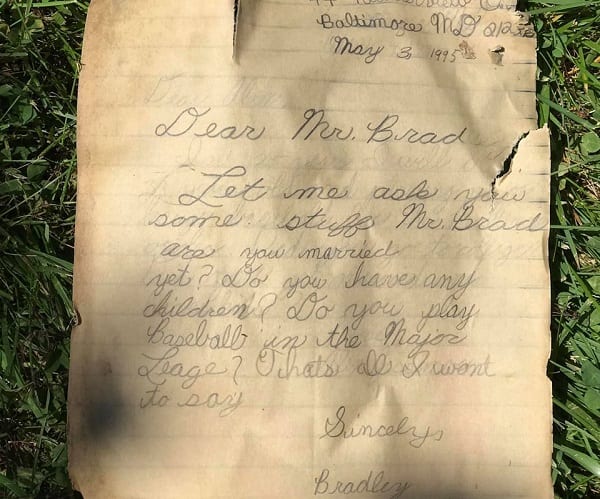 Baltimore MD
May 3, 1995
Dear Mr. Brad
Let me ask you
some stuff Mr. Brad
are you married
yet? Do you have any
children? Do you play
Baseball in the Major
Leage? Thats all I want
to say
Sincely,
Bradley